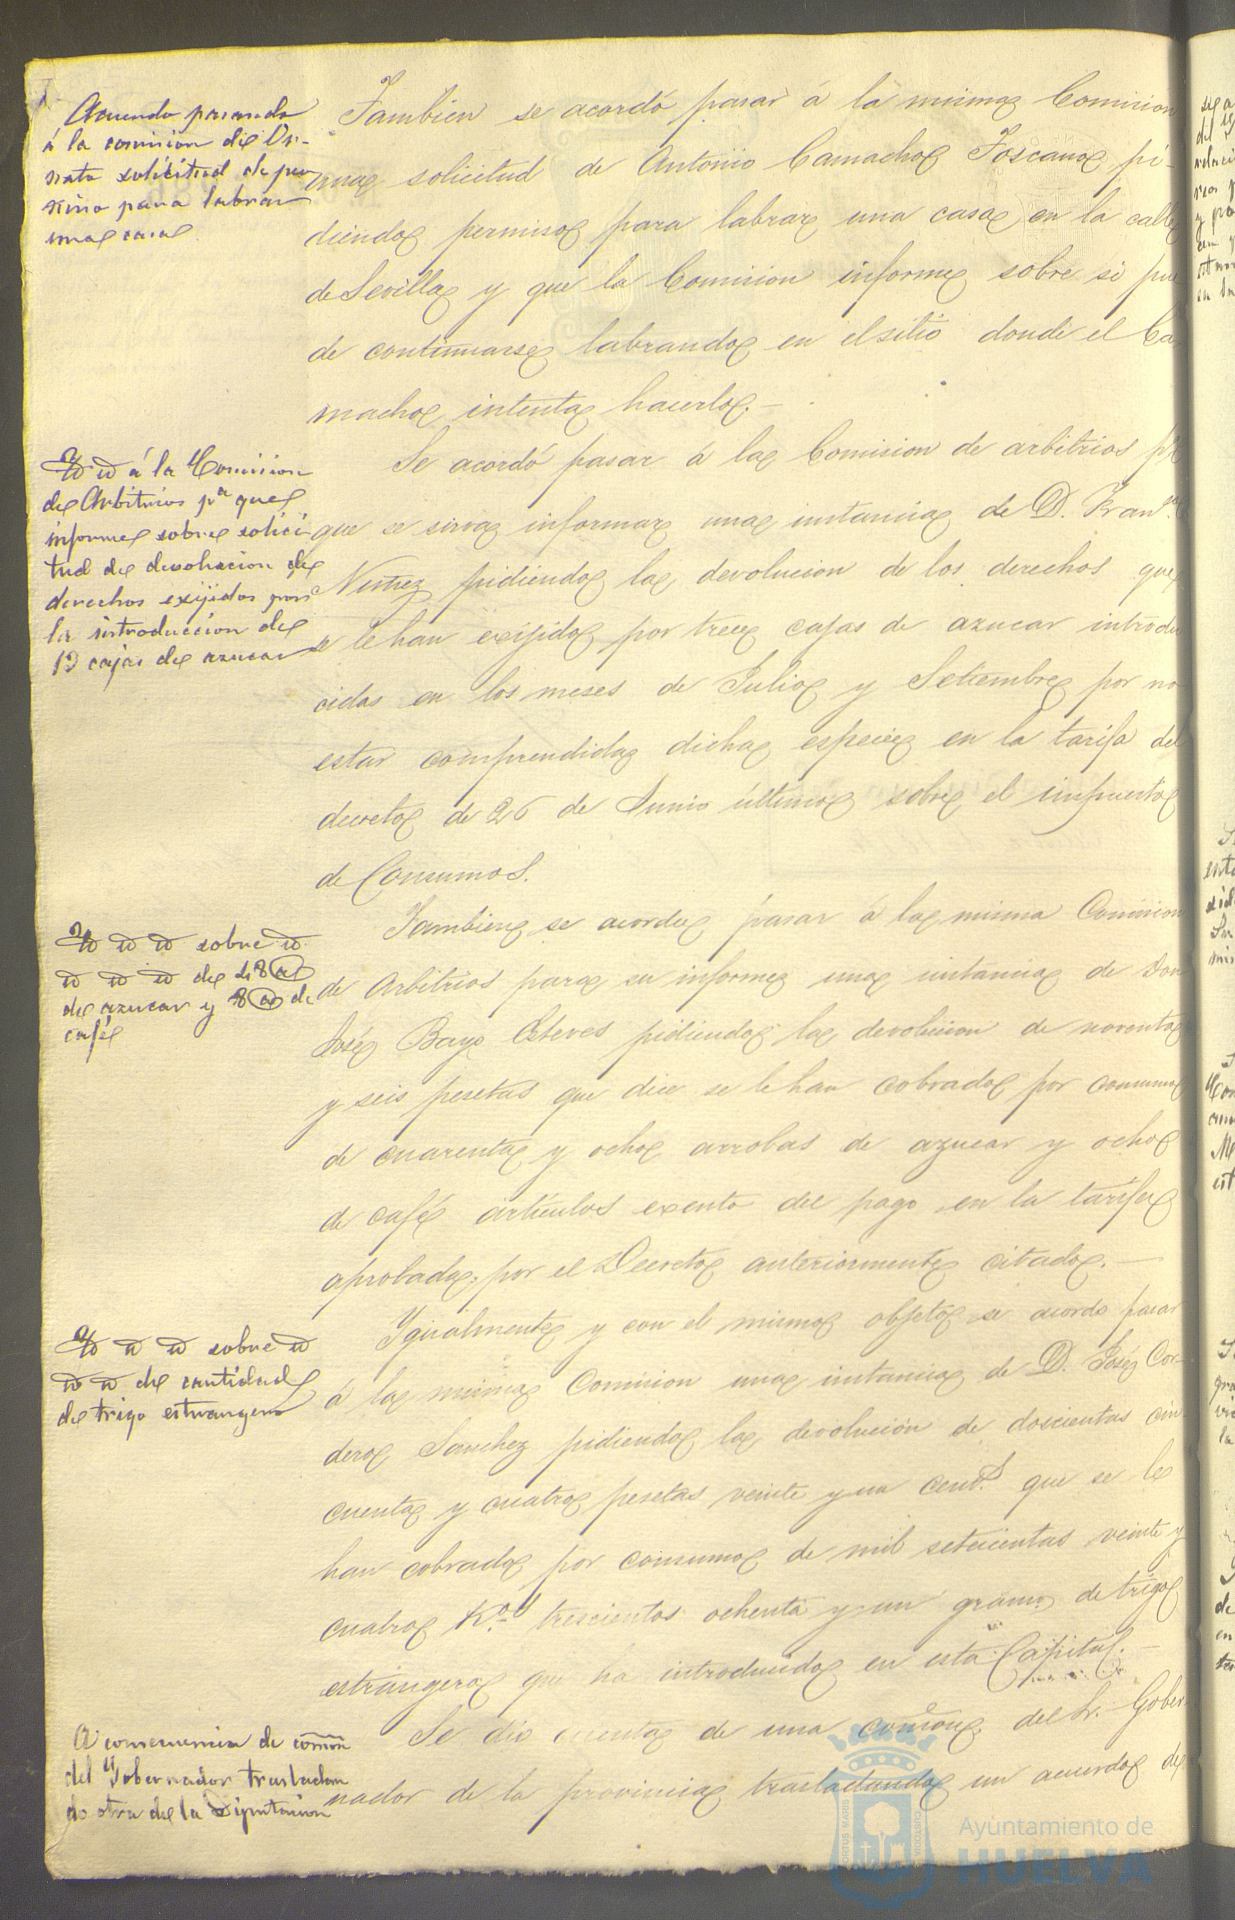 Acuerdo pasando
á la comision de Or-
nato solicitud de per
miso para labrar
una casa
Tambien se acordó pasar á la misma Comision
una solicitud de Antonio Camacho Toscano pi-
diendo permiso para labrar una casa en la calle
de Sevilla y que la Comision informe sobre si pue
de continuarse labrando en el sitio donde el Ca
macho intenta hacerlo.—
Yd id á la Comision
de Arbitrios pª que
informe sobre solici
tud de devolucion de
derechos exijidos por
la introduccion de
13 cajas de azucar
Se acordó pasar á la Comision de arbitrios pª
que se sirva informar una instancia de D. Franco
Nuñez pidiendo la devolucion de los derechos que
se le han exijido por trece cajas de azucar introdu
cidas en los meses de Julio y Setiembre por no
estar comprendida dicha especie en la tarifa del
decreto de 26 de Junio último sobre el impuesto
de Consumos.
Yd id id sobre id
id id id de 48 @
de azucar y 8 @ de
café
Tambien se acordó pasar á la misma Comision
de Arbitrios para su informe una instancia de Don
José Bayo Esteves pidiendo la devolucion de noventa
y seis pesetas que dice se le han cobrado por consumo
de cuarenta y ocho arrobas de azucar y ocho
de café artículos exento del pago en la tarifa
aprobada por el Decreto anteriormente citado.—
Yd id id sobre id
id id de cantidad
de trigo estrangero
Igualmente y con el mismo objeto se acordó pasar
á la misma Comision una instancia de D. José Cor-
dero Sanchez pidiendo la devolución de doscientas cin-
cuenta y cuatro pesetas veinte y un cents. que se le
han cobrado por consumo de mil setecientos veinte y
cuatro Kos. trescientos ochenta y un gramo de trigo
estrangero que ha introducido en esta Capital.—
A consecuencia de comon
del Gobernador trasladan
do otra de la Diputacion
Se dio cuenta de una comon del Sr. Gober
nador de la provincia trasladando un acuerdo de
Ayuntamiento de
HUELVA